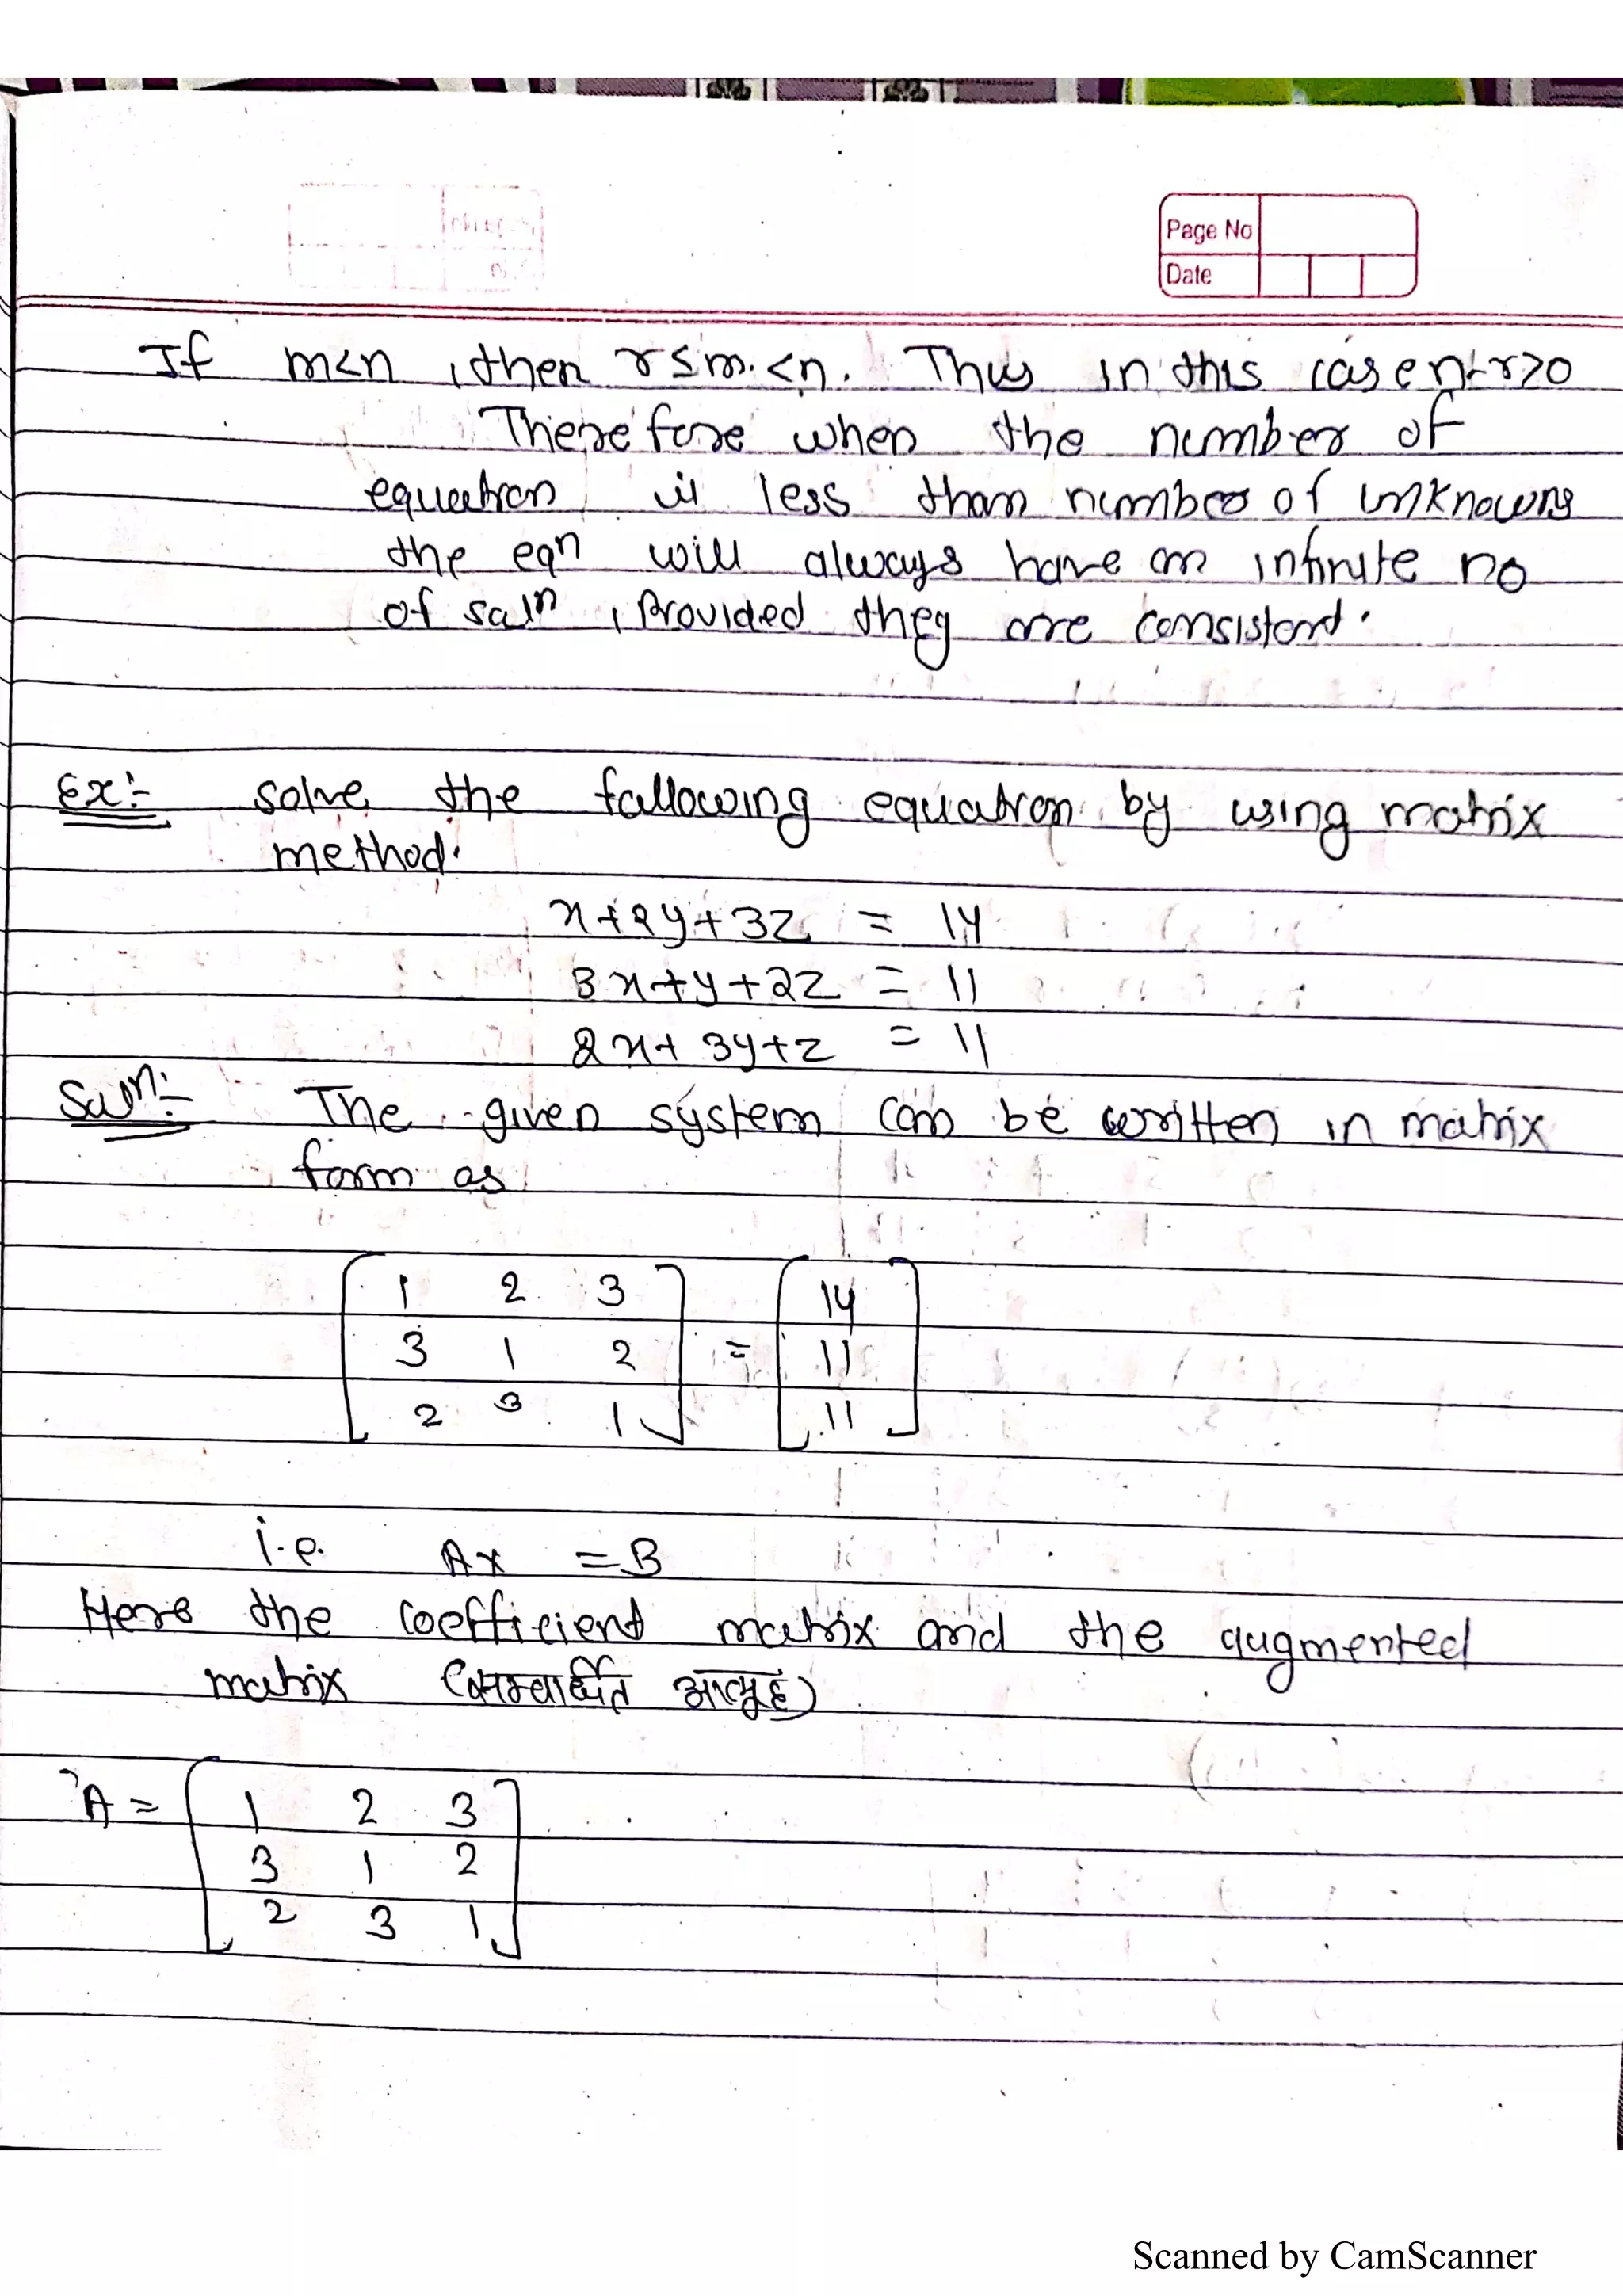 Page No
Date
If m<n, then r≤m<n. Thus in this case n-r>0
Therefore when the number of
equation is less than number of unknowns
the eqn will always have an infinite no
of soln, Provided they are consistent.
Ex:- solve the following equation by using matrix
method.
x+2y+3z = 14
3x+y+2z = 11
2x+3y+z = 11
Soln:- The given system can be written in matrix
form as
1 2 3 14
3 1 2 = 11
2 3 1 11
i.e. AX = B
Here the coefficient matrix and the augmented
matrix
A = 1 2 3
3 1 2
2 3 1
Scanned by CamScanner